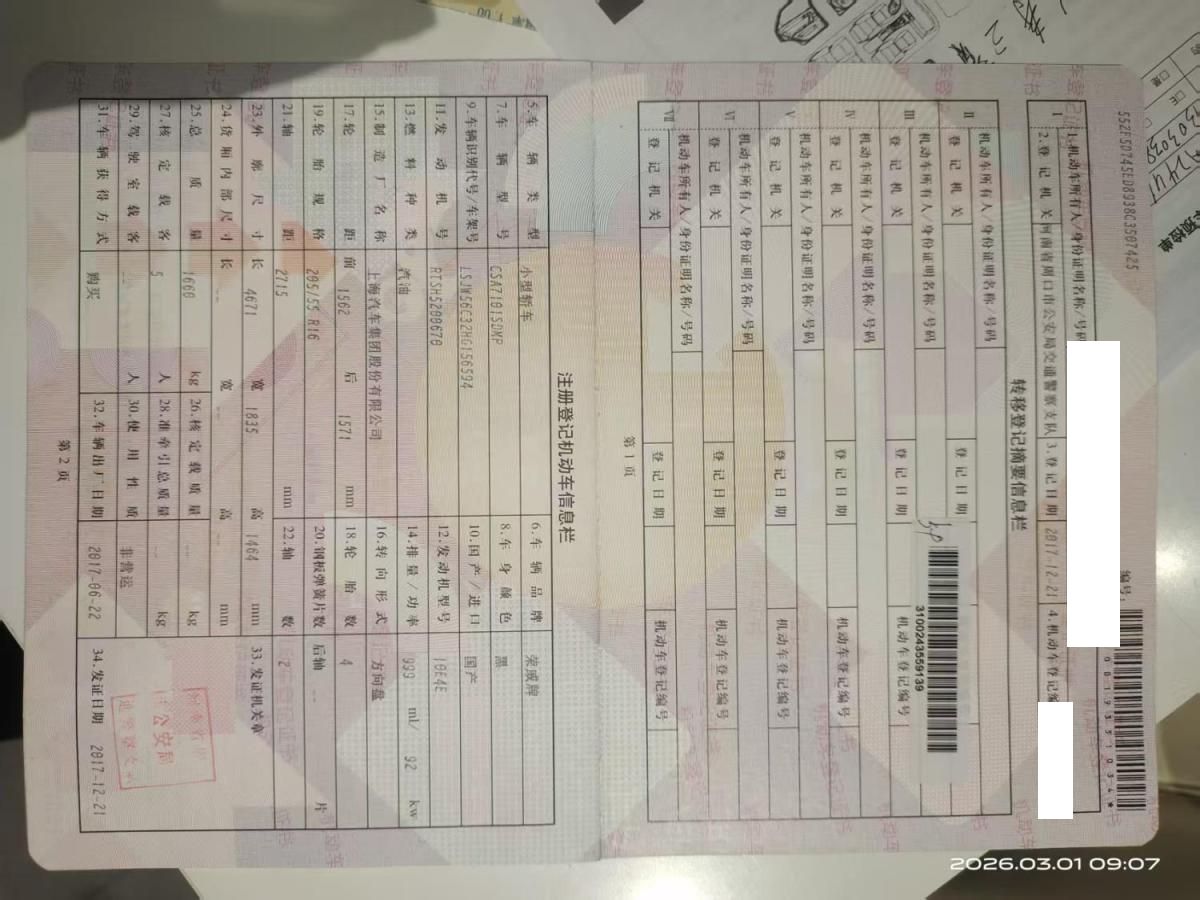 552F50745ED8938C3507425
编号:
1.机动车所有人/身份证明名称/号码
I 2.登记机关 河南省周口市公安局交通警察支队 3.登记日期 2017-12-21 4.机动车登记编
转移登记摘要信息栏
机动车所有人/身份证明名称/号码
II 登记机关 登记日期
机动车所有人/身份证明名称/号码
III 登记机关 登记日期 机动车登记编号
机动车所有人/身份证明名称/号码
IV 登记机关 登记日期 机动车登记编号
机动车所有人/身份证明名称/号码
V 登记机关 登记日期 机动车登记编号
机动车所有人/身份证明名称/号码
VI 登记机关 登记日期 机动车登记编号
机动车所有人/身份证明名称/号码
VII 登记机关 登记日期 机动车登记编号
310024355 9139
第1页
注册登记机动车信息栏
5.车辆类型 小型轿车 6.车辆品牌 荣威牌
7.车辆型号 CSA7101SDMP 8.车身颜色 黑
9.车辆识别代号/车架号 LSJW56C32HG156594 10.国产/进口 国产
11.发动机号 RTSH5200670 12.发动机型号 10E4E
13.燃料种类 汽油 14.排量/功率 999 ml/ 92 kw
15.制造厂名称 上海汽车集团股份有限公司 16.转向形式 方向盘
17.轮距 前 1562 后 1571 mm 18.轮胎数 4
19.轮胎规格 205/55 R16 20.钢板弹簧片数 后轴 -- 片
21.轴距 2715 mm 22.轴数 2
23.外廓尺寸 长 4671 宽 1835 高 1464 mm 33.发证机关章
24.货厢内部尺寸 长 -- 宽 -- 高 -- mm
25.总质量 1660 kg 26.核定载质量 -- kg
27.核定载客 5 人 28.准牵引总质量 -- kg
29.驾驶室载客 -- 人 30.使用性质 非营运
31.车辆获得方式 购买 32.车辆出厂日期 2017-06-22 34.发证日期 2017-12-21
第2页
2026.03.01 09:07